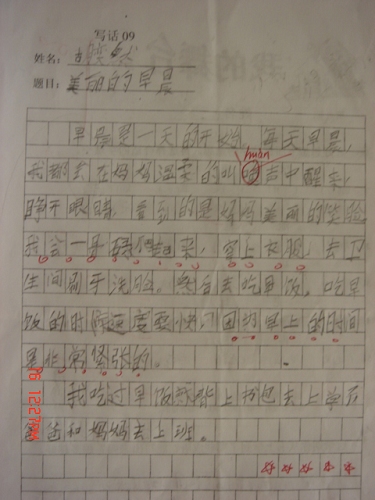 写话09
姓名：
题目：美丽的早晨
早晨是一天的开始，每天早晨，
huàn
我都会在妈妈温柔的叫唤声中醒来，
睁开眼睛，看到的是妈妈美丽的笑脸
我会一骨碌 来，穿上衣服，去卫
生间刷牙洗脸。然后去吃早饭，吃早
饭的时候速度要快，因为早上的时间
是非常紧张的。
我吃过早饭就背上书包去上学了
爸爸和妈妈去上班。